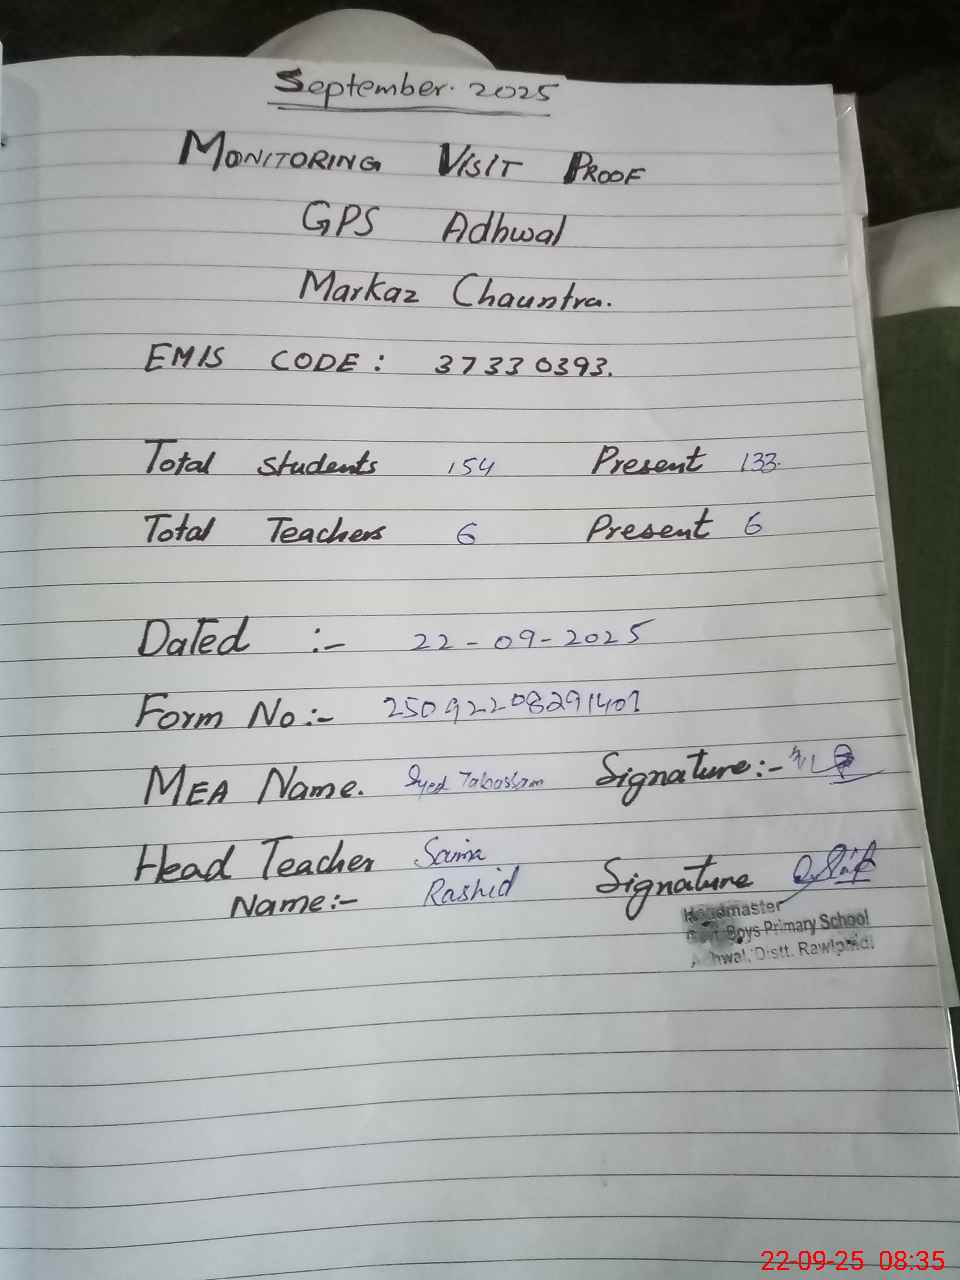 September. 2025
MONITORING VISIT PROOF
GPS Adhwal
Markaz Chauntra.
EMIS CODE: 37330393.
Total Students 154 Present 133.
Total Teachers 6 Present 6
Dated :- 22-09-2025
Form No:- 25092208291401
MEA Name. Syed Tabassam Signature:-
Head Teacher Saima
Name:- Rashid Signature
Headmaster
Govt. Boys Primary School
Adhwal, Distt. Rawlpindi
22-09-25 08:35